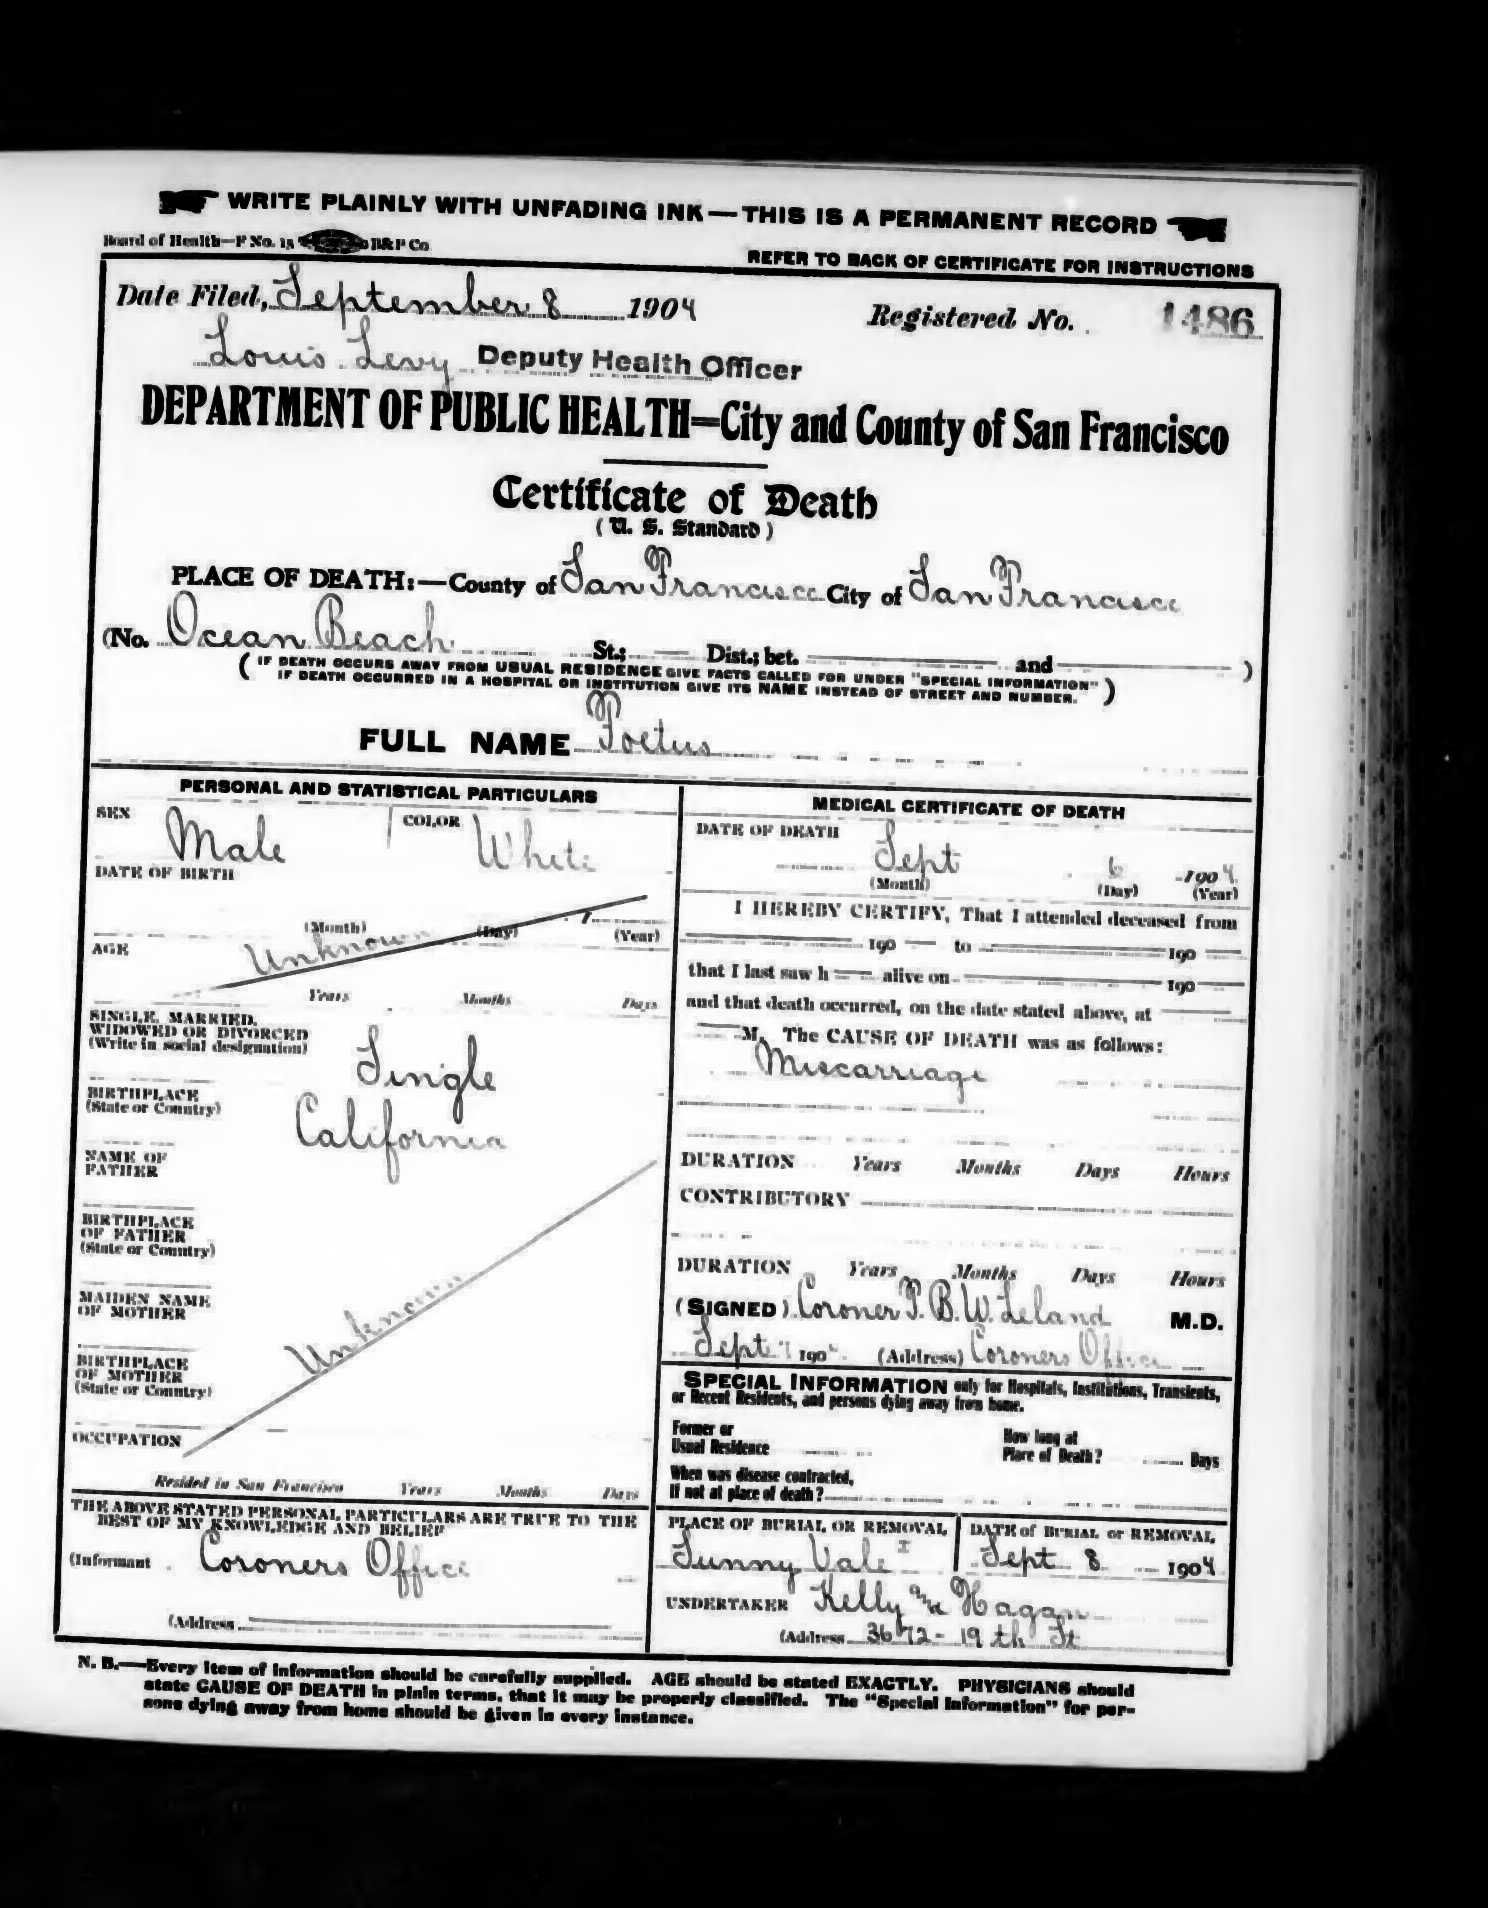 WRITE PLAINLY WITH UNFADING INK—THIS IS A PERMANENT RECORD
Board of Health—F No. 15 B&P Co
REFER TO BACK OF CERTIFICATE FOR INSTRUCTIONS
Date Filed, September 8 1904 Registered No. 1486
Louis Levy Deputy Health Officer
DEPARTMENT OF PUBLIC HEALTH—City and County of San Francisco
Certificate of Death
(U. S. Standard)
PLACE OF DEATH:—County of San Francisco City of San Francisco
(No. Ocean Beach St.; Dist.; bet. and )
(IF DEATH OCCURS AWAY FROM USUAL RESIDENCE GIVE FACTS CALLED FOR UNDER "SPECIAL INFORMATION"
IF DEATH OCCURRED IN A HOSPITAL OR INSTITUTION GIVE ITS NAME INSTEAD OF STREET AND NUMBER.)
FULL NAME Foetus
PERSONAL AND STATISTICAL PARTICULARS
SEX Male COLOR White
DATE OF BIRTH
(Month) (Day) (Year)
AGE Unknown
Years Months Days
SINGLE, MARRIED,
WIDOWED OR DIVORCED
(Write in social designation) Single
BIRTHPLACE
(State or Country) California
NAME OF
FATHER
BIRTHPLACE
OF FATHER
(State or Country)
MAIDEN NAME
OF MOTHER
Unknown
BIRTHPLACE
OF MOTHER
(State or Country)
OCCUPATION
Resided in San Francisco Years Months Days
THE ABOVE STATED PERSONAL PARTICULARS ARE TRUE TO THE
BEST OF MY KNOWLEDGE AND BELIEF
(Informant Coroners Office
(Address
MEDICAL CERTIFICATE OF DEATH
DATE OF DEATH
Sept 6 1904
(Month) (Day) (Year)
I HEREBY CERTIFY, That I attended deceased from
190 to 190
that I last saw h alive on 190
and that death occurred, on the date stated above, at
M. The CAUSE OF DEATH was as follows:
Miscarriage
DURATION Years Months Days Hours
CONTRIBUTORY
DURATION Years Months Days Hours
(SIGNED) Coroner T. B. W. Leland M.D.
Sept 7 190 (Address) Coroners Office
SPECIAL INFORMATION only for Hospitals, Institutions, Transients,
or Recent Residents, and persons dying away from home.
Former or
Usual Residence
How long at
Place of Death? Days
When was disease contracted,
If not at place of death?
PLACE OF BURIAL OR REMOVAL
Sunny Vale
DATE of BURIAL or REMOVAL
Sept 8 1904
UNDERTAKER Kelly and Hagan
(Address 3672-19th St
N. B.—Every item of information should be carefully supplied. AGE should be stated EXACTLY. PHYSICIANS should
state CAUSE OF DEATH in plain terms, that it may be properly classified. The "Special Information" for per-
sons dying away from home should be given in every instance.